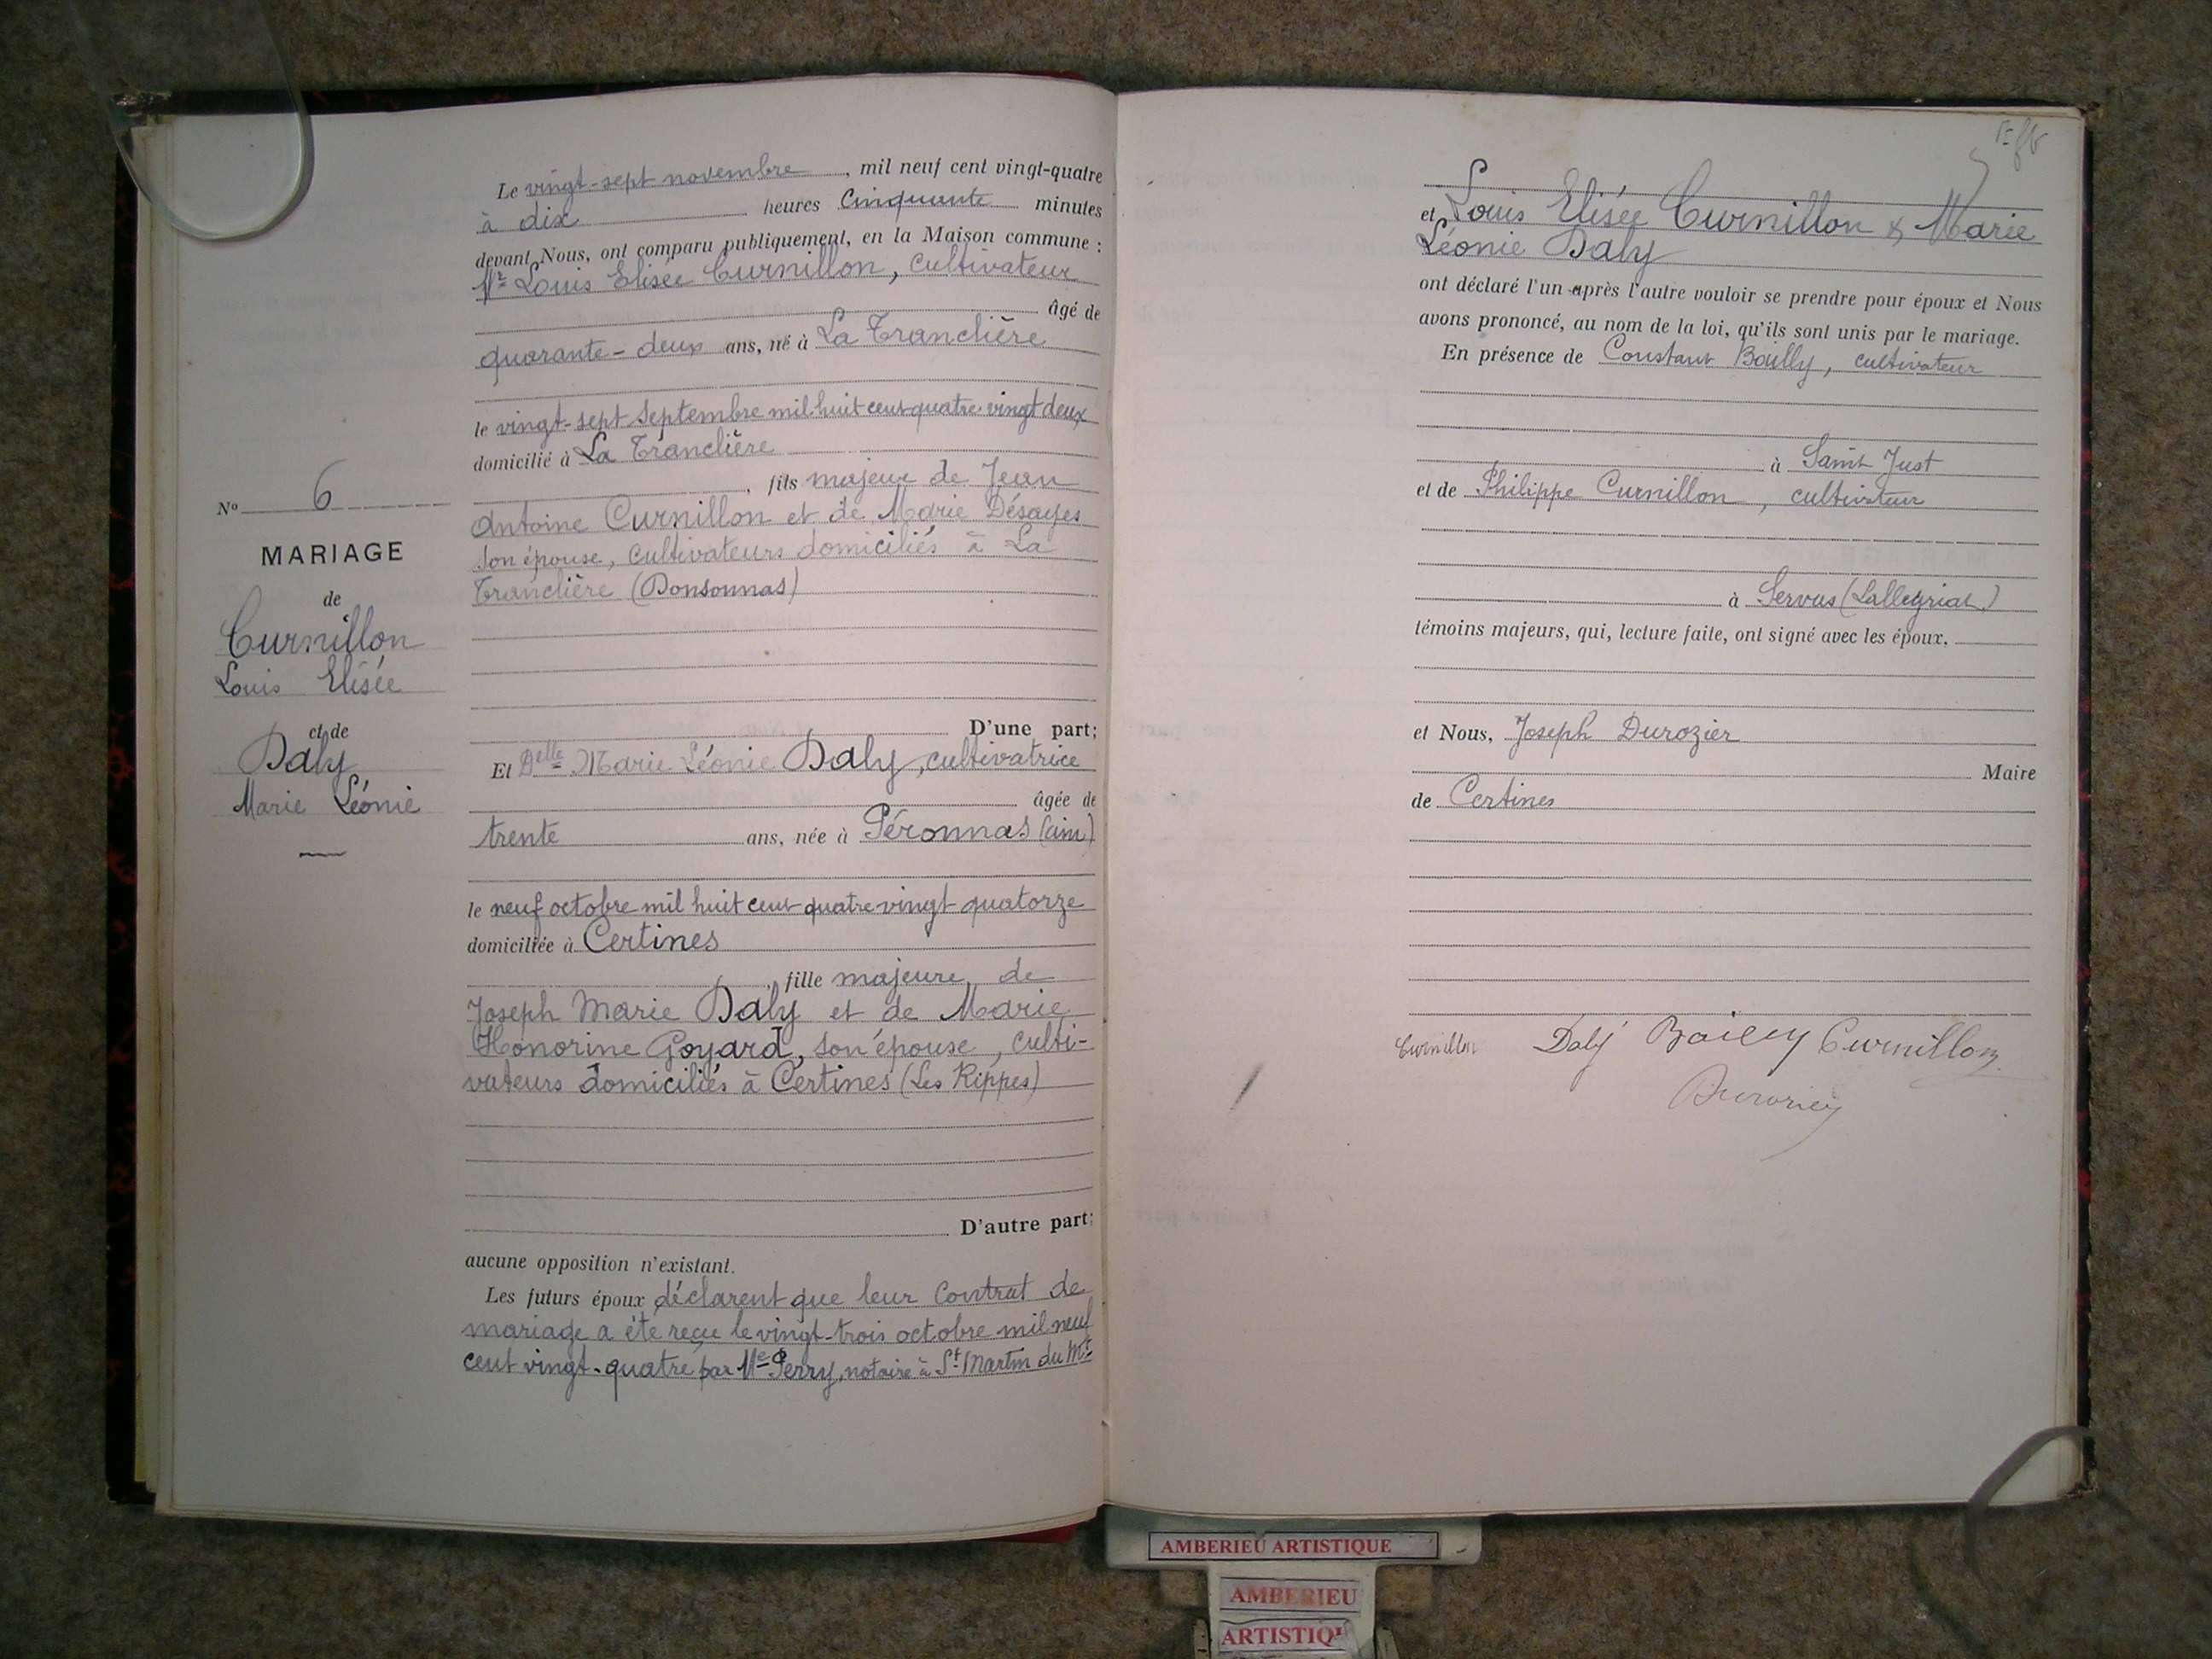 Le vingt-sept novembre, mil neuf cent vingt-quatre
à dix heures Cinquante minutes
devant Nous, ont comparu publiquement, en la Maison commune :
Mr Louis Elisée Curnillon, Cultivateur
âgé de
quarante-deux ans, né à La Tranclière
le vingt-sept Septembre mil huit cent quatre-vingt deux
domicilié à La Tranclière
, fils majeur de Jean
Antoine Curnillon et de Marie Désayes
son épouse, Cultivateurs domiciliés à La
Tranclière (Donsonnas)
D'une part;
Et Delle Marie Léonie Daly, cultivatrice
âgée de
trente ans, née à Péronnas (ain)
le neuf octobre mil huit cent quatre vingt quatorze
domiciliée à Certines
, fille majeure, de
Joseph Marie Daly et de Marie
Honorine Goyard, son épouse, culti-
vateurs domiciliés à Certines (Les Rippes)
D'autre part;
aucune opposition n'existant.
Les futurs époux déclarent que leur Contrat de
mariage a été reçu le vingt-trois octobre mil neuf
cent vingt-quatre par Me Perry, notaire à St Martin du Mt
No 6
MARIAGE
de
Curnillon
Louis Elisée
et de
Daly
Marie Léonie
et Louis Elisée Curnillon & Marie
Léonie Daly
ont déclaré l'un après l'autre vouloir se prendre pour époux et Nous
avons prononcé, au nom de la loi, qu'ils sont unis par le mariage.
En présence de Constant Bailly, cultivateur
à Saint Just
et de Philippe Curnillon, cultivateur
à Servas (Lalleyriat)
témoins majeurs, qui, lecture faite, ont signé avec les époux,
et Nous, Joseph Durozier
Maire
de Certines
Curnillon Daly Bailly Curnillon
Durozier
AMBERIEU ARTISTIQUE
AMBERIEU
ARTISTIQU